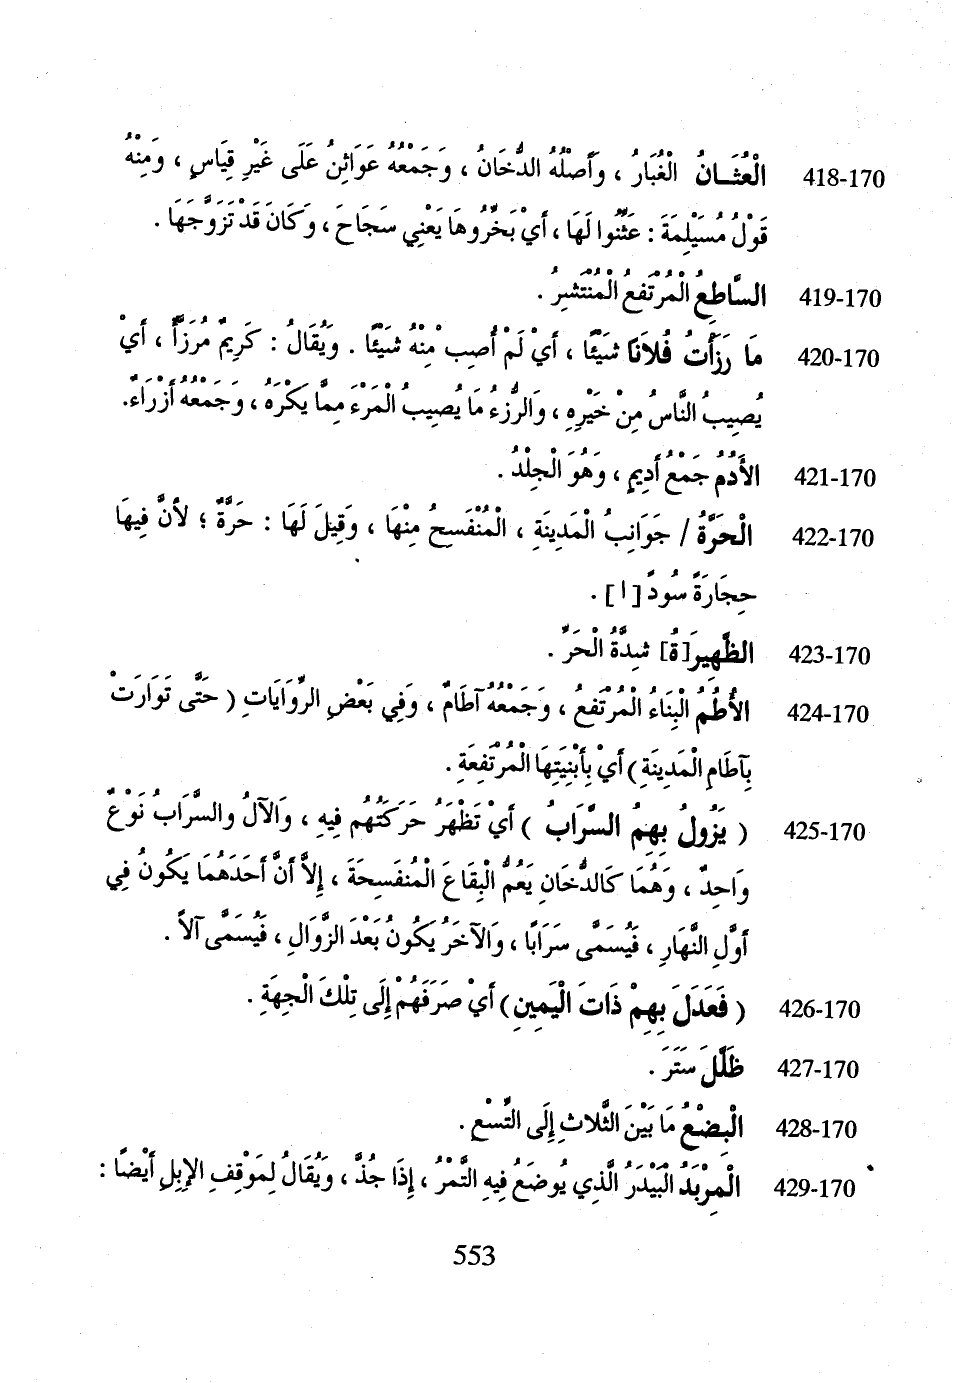 418-170 الْعُثَــانُ الْغُبَارُ ، وَأَصْلُهُ الدُّخَانُ ، وَجَمْعُهُ عَوَاثِنُ عَلَى غَيْرِ قِيَاسٍ ، وَمِنْهُ
قَوْلُ مُسَيْلِمَةَ : عَثِّنُوا لَهَا ، أَيْ بَخِّرُوهَا يَعْنِي سَجَاحَ ، وَكَانَ قَدْ تَزَوَّجَهَا .
419-170 السَّاطِعُ الْمُرْتَفِعُ الْمُنْتَشِرُ .
420-170 مَا رَزَأْتُ فُلَانًا شَيْئًا ، أَيْ لَمْ أُصِبْ مِنْهُ شَيْئًا . وَيُقَالُ : كَرِيمٌ مُرَزَّأٌ ، أَيْ
يُصِيبُ النَّاسُ مِنْ خَيْرِهِ ، وَالرُّزْءُ مَا يُصِيبُ الْمَرْءَ مِمَّا يَكْرَهُ ، وَجَمْعُهُ أَرْزَاءٌ.
421-170 الأَدَمُ جَمْعُ أَدِيمٍ ، وَهُوَ الْجِلْدُ .
422-170 الْحَرَّةُ / جَوَانِبُ الْمَدِينَةِ ، الْمُنْفَسِحُ مِنْهَا ، وَقِيلَ لَهَا : حَرَّةٌ ؛ لأَنَّ فِيهَا
حِجَارَةً سُودً [ا] .
423-170 الظَّهِيرَ[ةُ] شِدَّةُ الْحَرِّ .
424-170 الأُطُمُ الْبِنَاءُ الْمُرْتَفِعُ ، وَجَمْعُهُ آطَامٌ ، وَفِي بَعْضِ الرِّوَايَاتِ ( حَتَّى تَوَارَتْ
بِآطَامِ الْمَدِينَةِ ) أَيْ بِأَبْنِيَتِهَا الْمُرْتَفِعَةِ .
425-170 ( يَزُولُ بِهِمُ السَّرَابُ ) أَيْ تَظْهَرُ حَرَكَتُهُمْ فِيهِ ، وَالآلُ وَالسَّرَابُ نَوْعٌ
وَاحِدٌ ، وَهُمَا كَالدُّخَانِ يَعُمُّ الْبِقَاعَ الْمُنْفَسِحَةَ ، إِلاَّ أَنَّ أَحَدَهُمَا يَكُونُ فِي
أَوَّلِ النَّهَارِ ، فَيُسَمَّى سَرَابًا ، وَالآخَرُ يَكُونُ بَعْدَ الزَّوَالِ ، فَيُسَمَّى آلاً .
426-170 ( فَعَدَلَ بِهِمْ ذَاتَ الْيَمِينِ ) أَيْ صَرَفَهُمْ إِلَى تِلْكَ الْجِهَةِ .
427-170 ظَلَّلَ سَتَرَ .
428-170 الْبِضْعُ مَا بَيْنَ الثَّلاَثِ إِلَى التِّسْعِ .
429-170 الْمِرْبَدُ الْبَيْدَرُ الَّذِي يُوضَعُ فِيهِ التَّمْرُ ، إِذَا جُذَّ ، وَيُقَالُ لِمَوْقِفِ الإِبِلِ أَيْضًا :
553